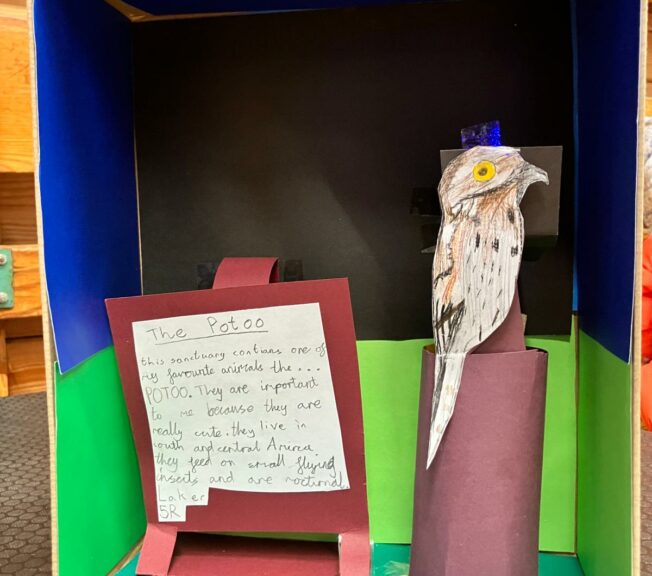 The Potoo
this sanctuary contians one of
my favourite animals the...
POTOO. They are important
to me because they are
really cute. they live in
south and central America.
they feed on small flying
insects and are noctional
Laker
5R